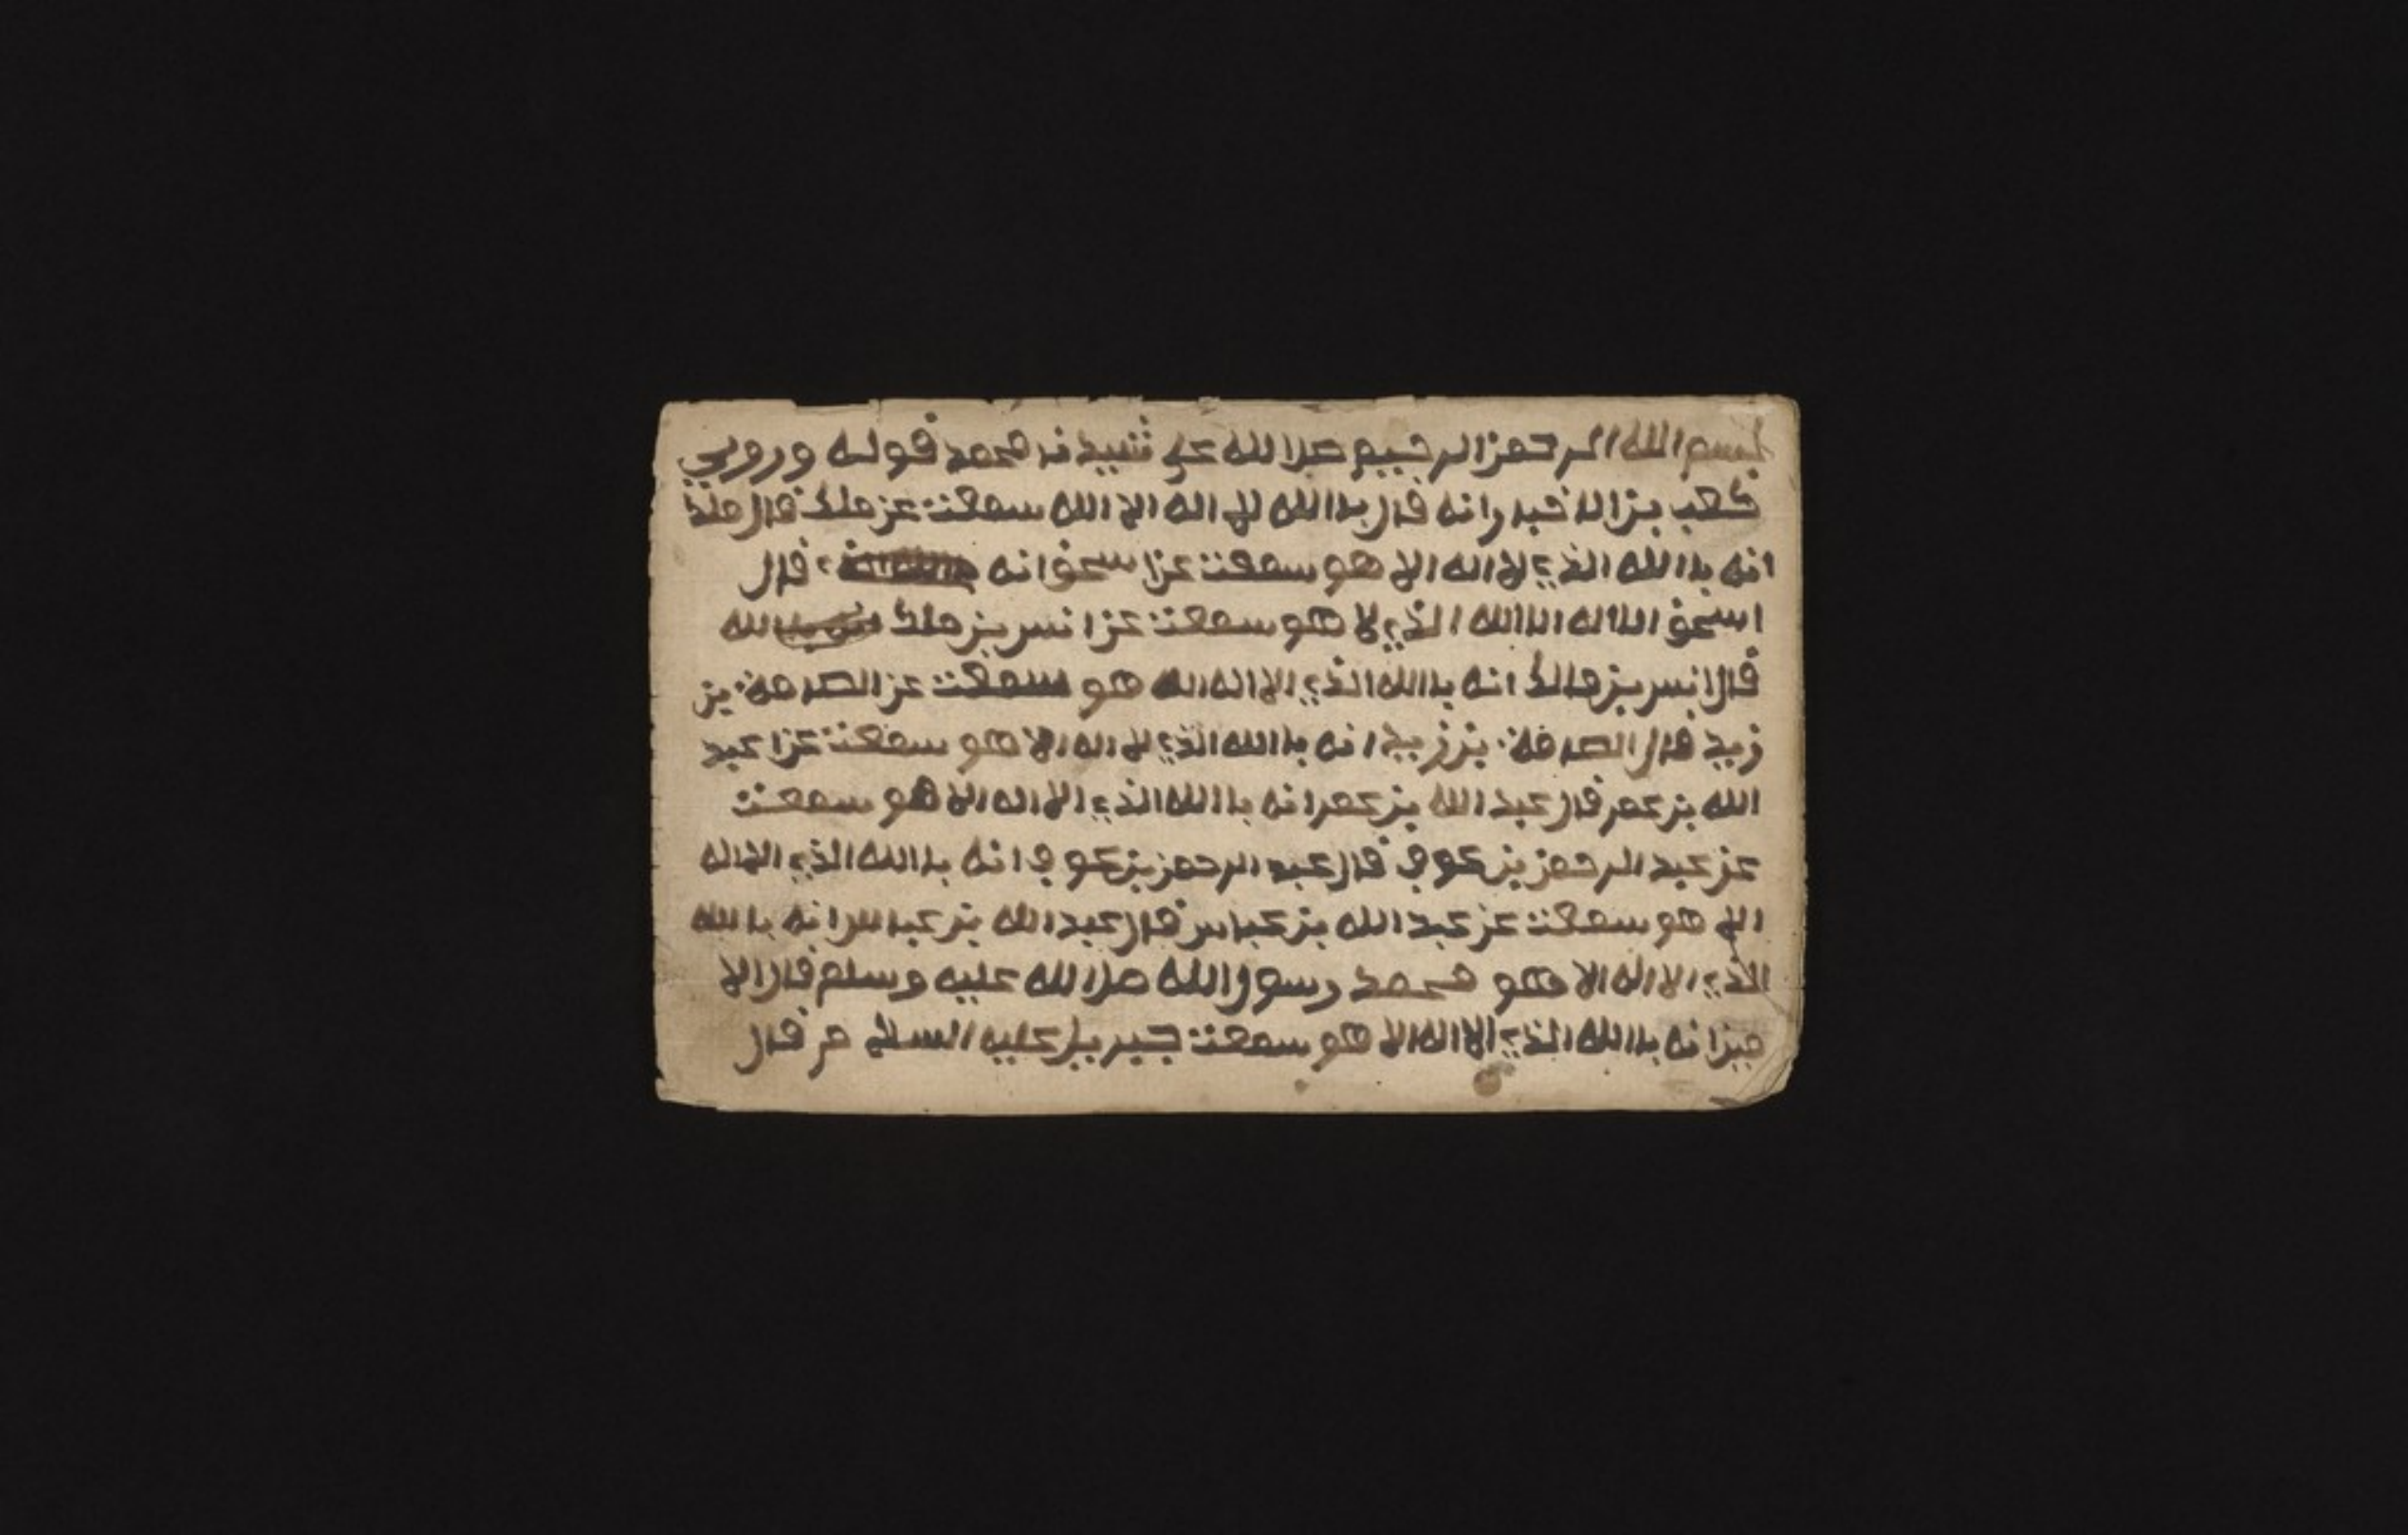 بسم الله الرحمن الرحيم صلا الله على سيد نا محمد قوله وروي
كعب بن الاخبر انه قال باالله لا اله الا الله سمعت عن ملك قال ملك
انه باالله الذي لا اله الا هو سمعت عن اسحق انه قال
اسحق الااله الاالله الذي لا هو سمعت عن انس بن ملك الله
قال انس بن مالك انه باالله الذي الا اله الله هو سمعت عن الصدفة بن
زيد قال الصدفة بن زيد انه باالله الذي لا اله الا هو سمعت عن اعبد
الله بن عمر قال عبد الله بن عمر انه باالله الذي الا اله الا هو سمعت
عن عبد الرحمن بن عوف قال عبد الرحمن بن عوف انه باالله الذي الا اله
الا هو سمعت عن عبد الله بن عباس قال عبد الله بن عباس انه باالله
الذي الا اله الا هو محمد رسول الله صلا الله عليه وسلم قال الا
مين انه باالله الذي الا اله الا هو سمعت جبريل عليه السلا م قال